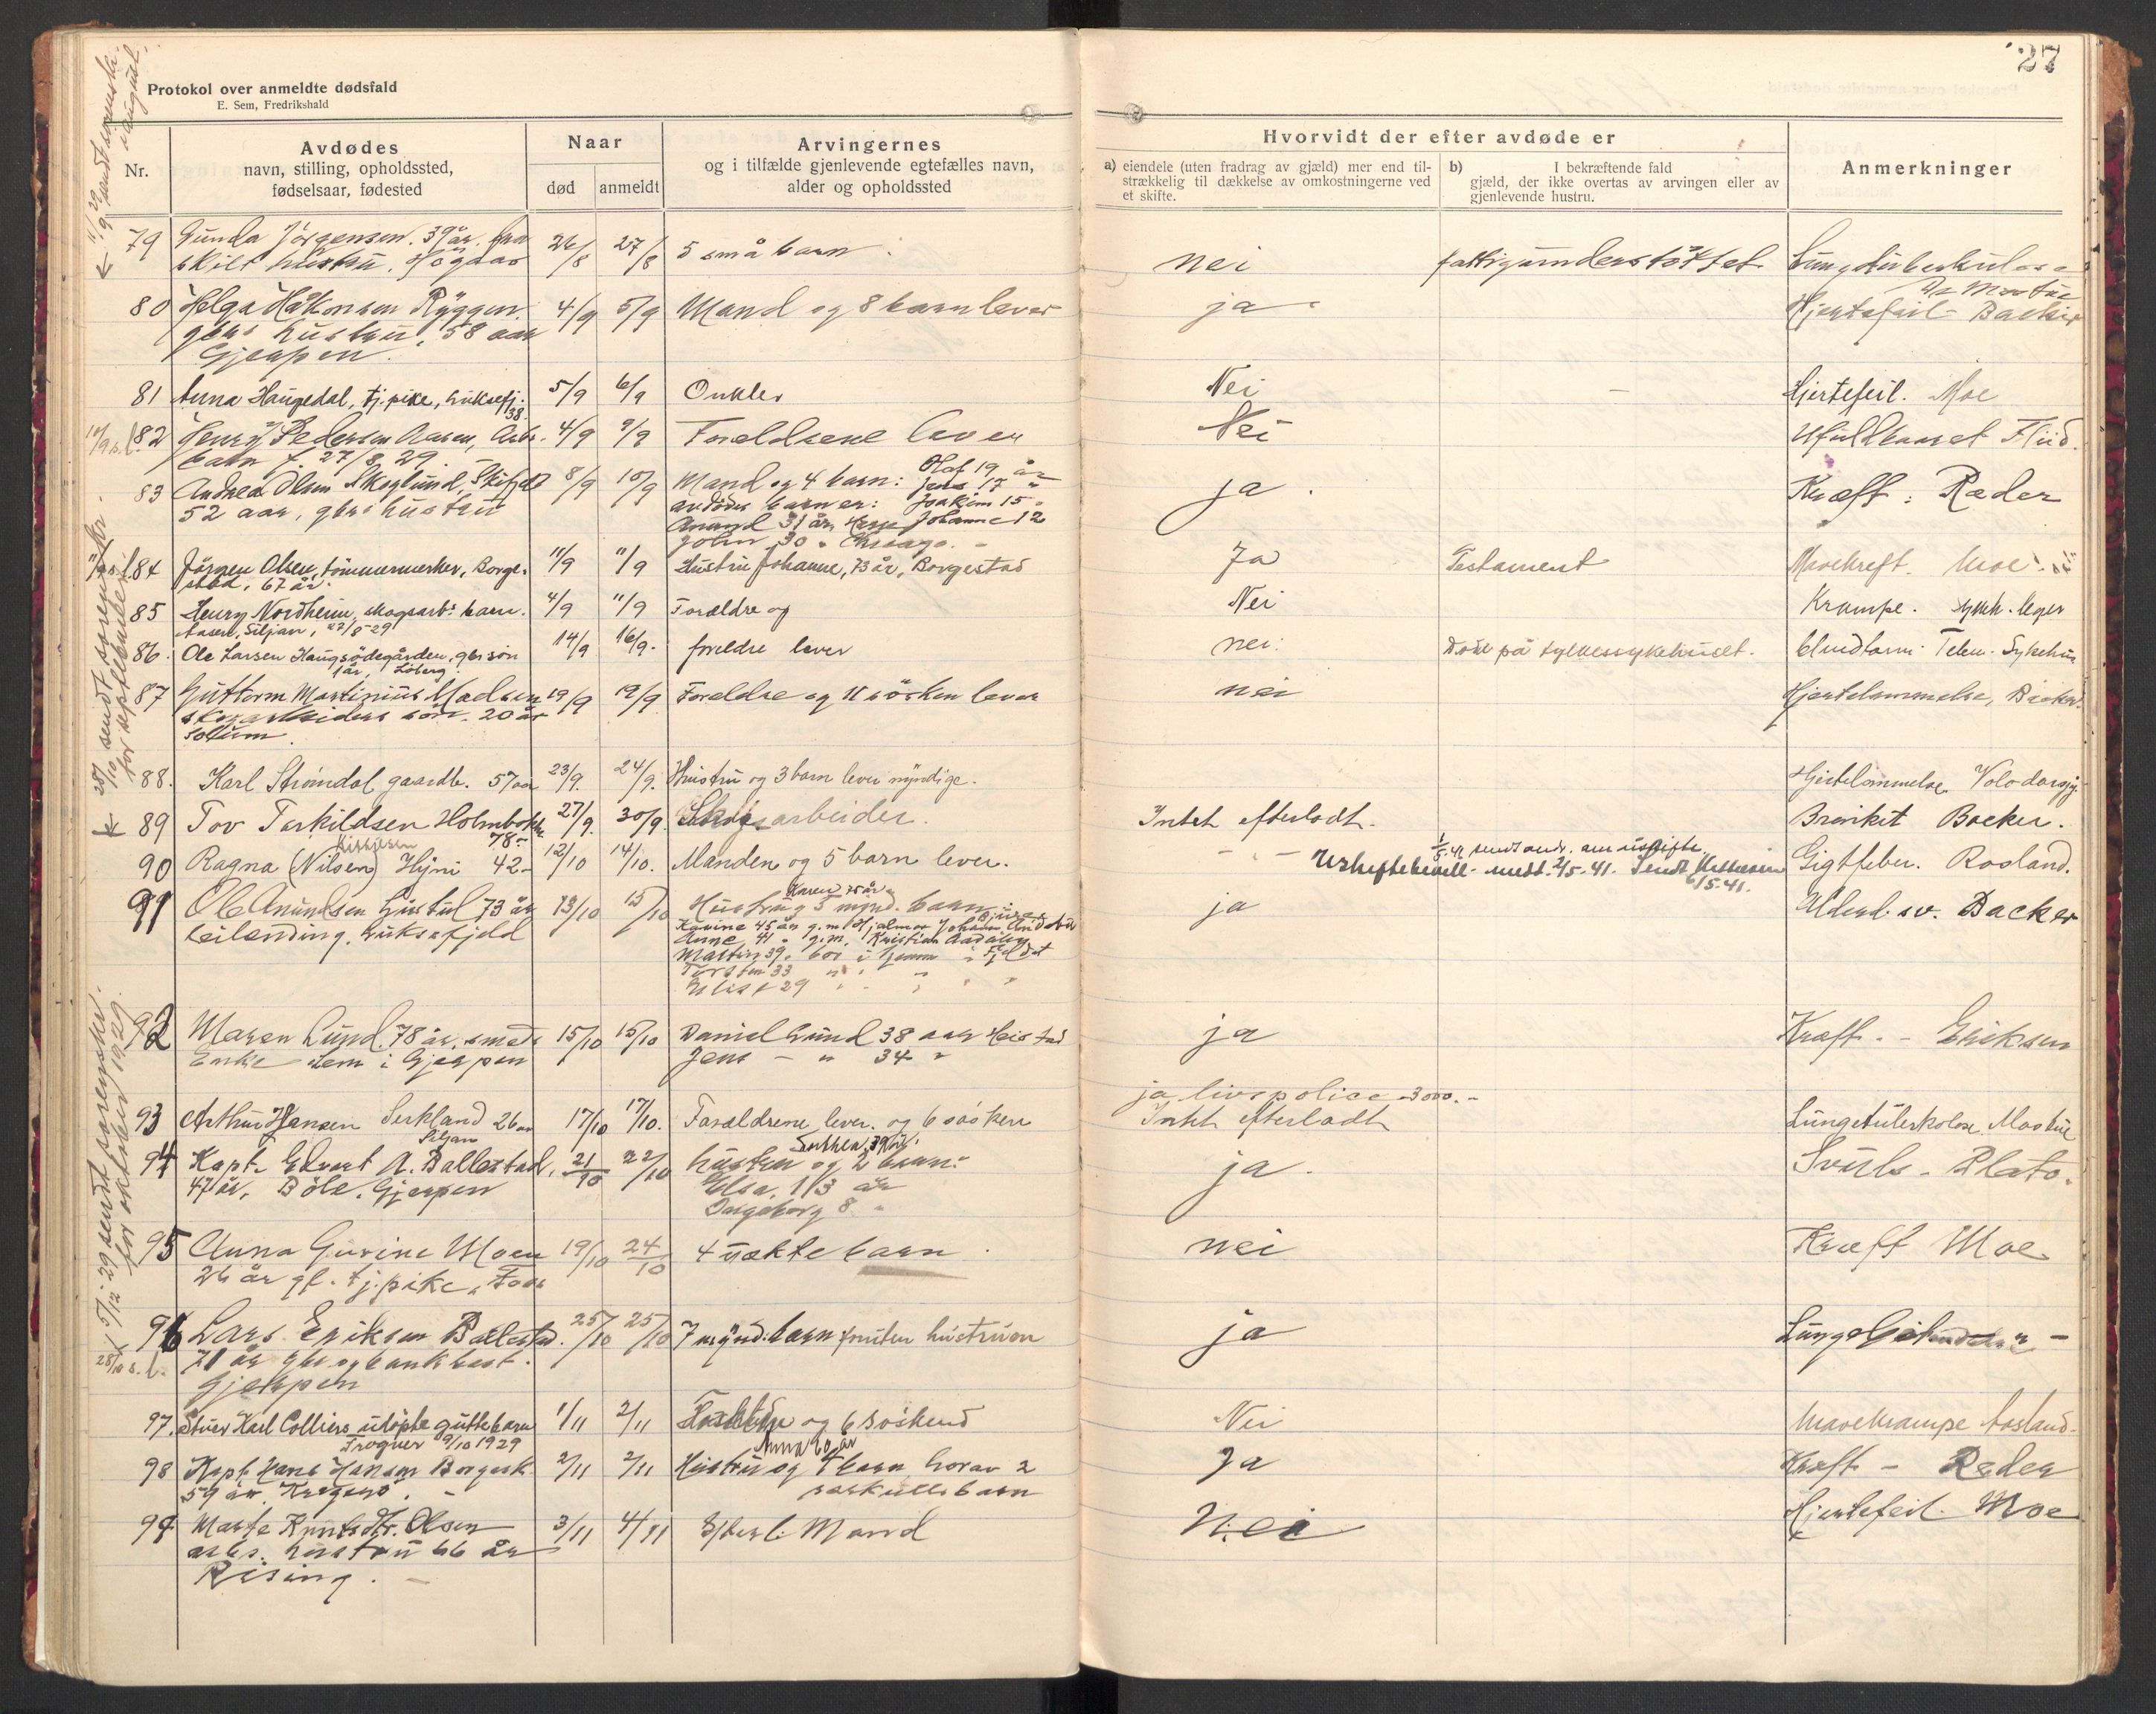 27
Protokol over anmeldte dødsfald
E. Sem, Fredrikshald
Nr.
Avdødes
navn, stilling, opholdssted,
fødselsaar, fødested
Naar
død
anmeldt
Arvingernes
og i tilfælde gjenlevende egtefælles navn,
alder og opholdssted
Hvorvidt der efter avdøde er
a) eiendele (uten fradrag av gjæld) mer end til-
strækkelig til dækkelse av omkostningerne ved
et skifte.
b) I bekræftende fald
gjæld, der ikke overtas av arvingen eller av
gjenlevende hustru.
Anmerkninger
79 Gunda Jörgensen. 39 år. fra 26/8 27/8 5 små barn nei fattigunderstöttet Lungetuberkulose
skilt hustru.
80 Helga Håkonsen Ryggen 4/9 5/9 Mand og 8 barn lever ja Hjertefeil - Backer
gbrs hustru, 58 aar
Gjerpen.
81 Anna Haugedal, tj. pike, Luksefj. 5/9 6/9 Onkler Nei — Hjertefeil. Moe
38
82 Henry Pedersen Aasen, Arb. 4/9 9/9 Foreldrene lever Nei Ufuldbaaret Fliid.
barn f. 27/8 29
83 Andrea Olsen Skoglund, 8/9 10/9 Mand og 4 barn: Olaf 19 år ja. Kræft: Ræder
52 aar, gbrs hustru
Jens 17 "
avdødes barn er: Joakim 15 "
Anund 31 år, Johanne 12
John 30 " Chicago.
84 Jörgen Olsen, tömmermerker, Borge- 11/9 11/9 Hustru Johanne, 73 år, Borgestad Ja Testament Mavekreft. Moe.
stad, 67 år.
85 Henry Nordheim, skogsarb. barn. 4/9 11/9 Forældre og Nei Krampe. sykh. leger
Aasen, Siljan, 27/8-29
86. Ole Larsen Haugsödegården, gbr sön 14/9 16/9. foreldre lever nei. Döde på fylkessykehuset. Blindtarm Telem. Sykehus
1 år, Löberg
87 Guttorm Martinius Madsen 19/9 19/9 Foreldre og 11 sösken lever nei Hjertelammelse, Backer.
skogarbeiders sön. 20 år
Solum
88. Karl Strömdal gaardb. 57 aar 23/9. 24/9. Hustru og 3 barn lever myndige. Hjertelammelse
89 Tov Torkildsen Holmbakken 27/9. 30/9. Skogsarbeider. Intet efterladt. Bronkit Backer.
78-
90 Ragna (Nilsen) Hyni 42- 12/10 14/10. Manden og 5 barn lever. - " - Gigtfeber. Rosland.
Uskiftebevill. medt. 2/5-41.
6/5-41.
91 Ole Anundsen Gustul 73 år 13/10 15/10 Hustru og 5 mynd. barn: ja Alderd. sv. Backer
leilending. Luksefjeld
Karen 75 år
Karine 45 år g.m. Hjalmar Johansen
Anne 41 " g.m. Kristian
Martin 39 " bor i hjemmet
Torsten 33 " "
29 " "
92 Maren Lund. 78 år. smeds 15/10 15/10 Daniel Lund 38 aar Heistad ja Kræft. - Eriksen
Enke Lem i Gjerpen
Jens - " 34 "
ja livspolice 3000.-
93 Arthur Hansen Serkland 26 aar 17/10 17/10. Forældrene lever. og 6 sösken Intet efterladt Lungetuberkolose. Mostue
Siljan
94 Kapt. Edvart A. Ballestad, 21/10 22/10 hustru og 2 barn: ja. Svuls - Plato.
47 år, Böle, Gjerpen
Elsa, 13 år
Ingeborg 8 "
95 Anna Gurine Moen 19/10 24/10 4 uækte barn. nei Kræft Moe
26 år gl. tj. pike, Foss
96 Lars Eriksen Ballestad. 25/10 25/10 7 mynd. barn foruten hustruen ja
71 år gbr og bankbest.
Gjerpen
28/10 s. l.
97. Stuer Karl Colliers udöpte guttebarn 1/11 2/11 og 6 söskend Nei Mavekrampe Aasland.
Frogner 9/10 1929
98 Kapt. Hans Hansen Borgest. 2/11 2/11 Hustru og 4 barn horav 2 Ja Kræft - Ræder
59 år. Kragerö.
Anna 60 år
særkullsbarn
99 Marte Knutsdtr. Olsen 3/11 4/11 Efterl. Mand Nei Hjertefeil. Moe
arbs. hustru 66 år
Rising.
11/9 29 sendt
i august.
28/10 sendt sorenskr.
for september.
5/12 29 sendt sorenskr.
for oktober 1929.